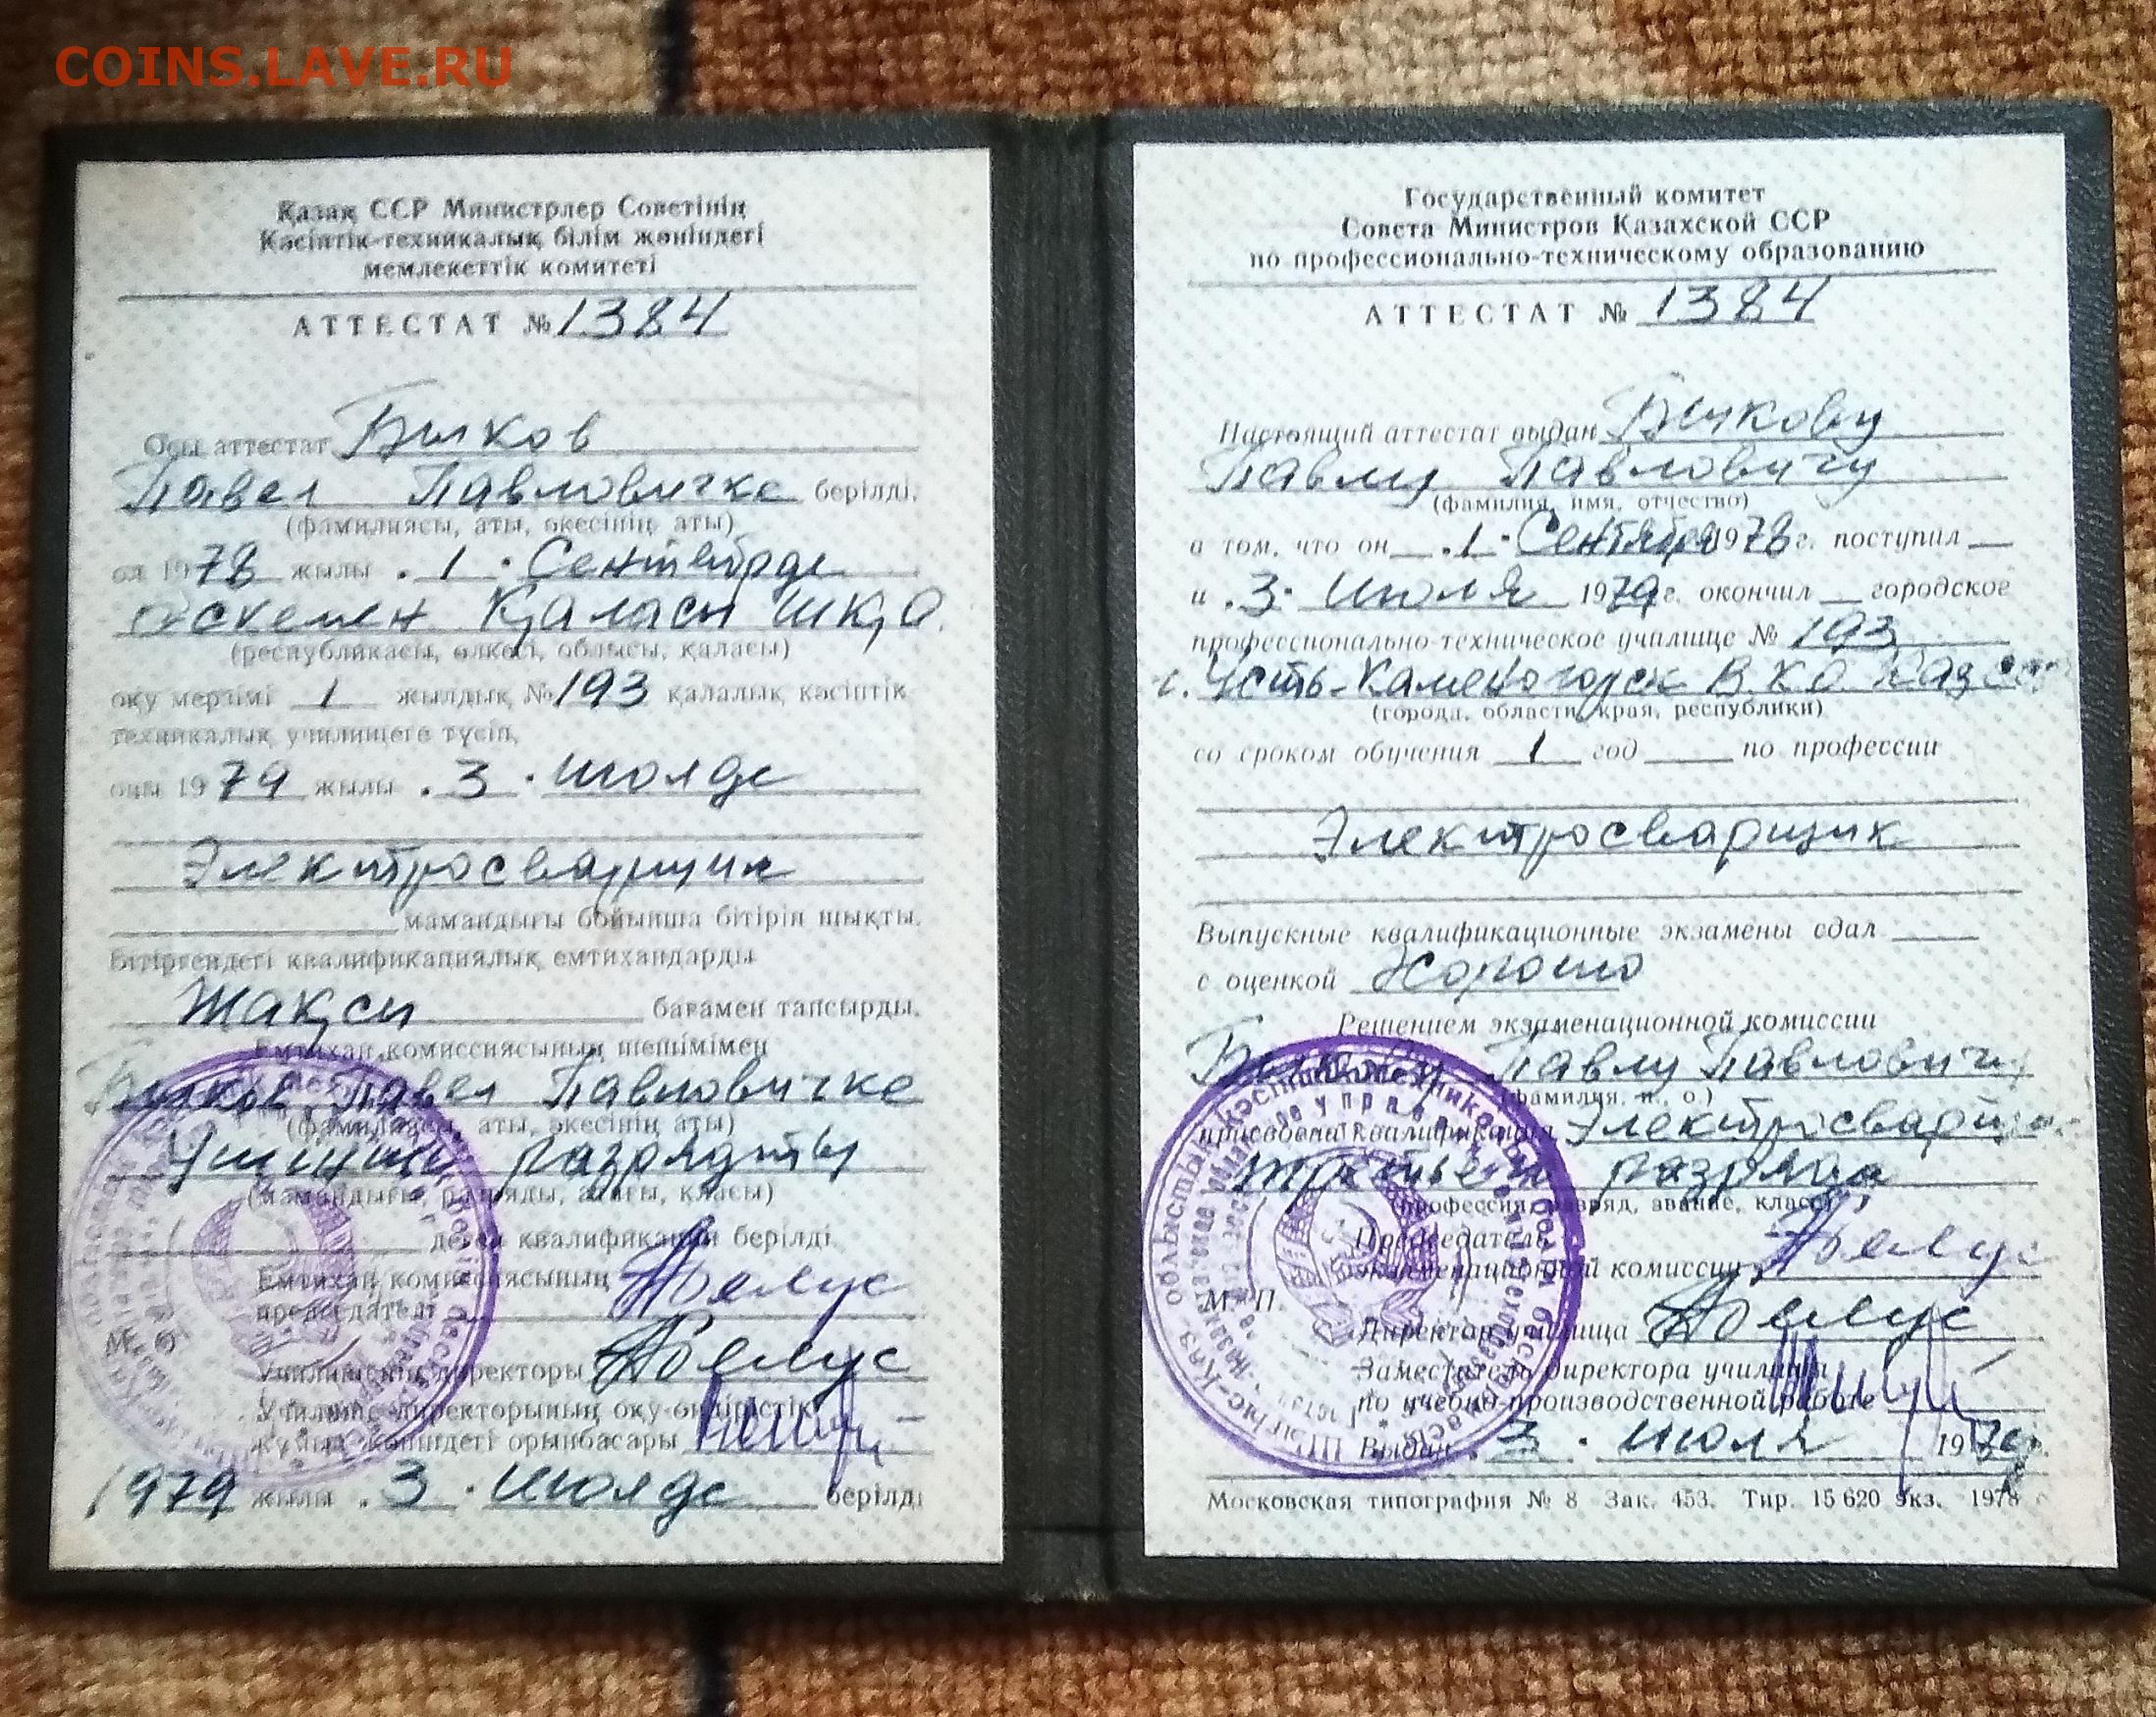 COINS.LAVE.RU
Қазақ ССР Министрлер Советінің
Кәсіптік-техникалық білім жөніндегі
мемлекеттік комитеті
АТТЕСТАТ № 1384
Осы аттестат Быков
Павел Павловичке берілді,
(фамилиясы, аты, әкесінің аты)
ол 1978 жылы „1" Сентябрде
Өскемен Қаласы ШҚО.
(республикасы, өлкесі, облысы, қаласы)
оқу мерзімі 1 жылдық № 193 қалалық кәсіптік
техникалық училищеге түсіп,
оны 1979 жылы „3" июлде
Электросварщик
мамандығы бойынша бітіріп шықты.
Бітіргендегі квалификациялық емтихандарды
Жақсы бағамен тапсырды.
Емтихан комиссиясының шешімімен
Павел Павловичке
(фамилиясы, аты, әкесінің аты)
Үшінші разрядты
(мамандығы, разряды, атағы, класы)
деген квалификация берілді.
Емтихан комиссиясының
председателі
М. О.
Училищенің директоры
Училище директорының оқу-өндірістік
жұмыс жөніндегі орынбасары
1979 жылы „3" июлде берілді
Государственный комитет
Совета Министров Казахской ССР
по профессионально-техническому образованию
АТТЕСТАТ № 1384
Настоящий аттестат выдан Быкову
Павлу Павловичу
(фамилия, имя, отчество)
в том, что он „1" Сентября 1978 г. поступил
и „3" июля 1979 г. окончил городское
профессионально-техническое училище № 193
г. Усть-Каменогорск В.К.О. Каз ССР
(города, области, края, республики)
со сроком обучения 1 год по профессии
Электросварщик
Выпускные квалификационные экзамены сдал
с оценкой Хорошо
Решением экзаменационной комиссии
Быкову Павлу Павловичу
(фамилия, и., о.)
присвоена квалификация Электросварщик
третьего разряда
(профессия, разряд, звание, класс)
Председатель
экзаменационной комиссии
М. П.
Директор училища
Заместитель директора училища
по учебно-производственной работе
Выдан „3" июля 1979 г.
Московская типография № 8 Зак. 453. Тир. 15 620 экз. 1978 г.